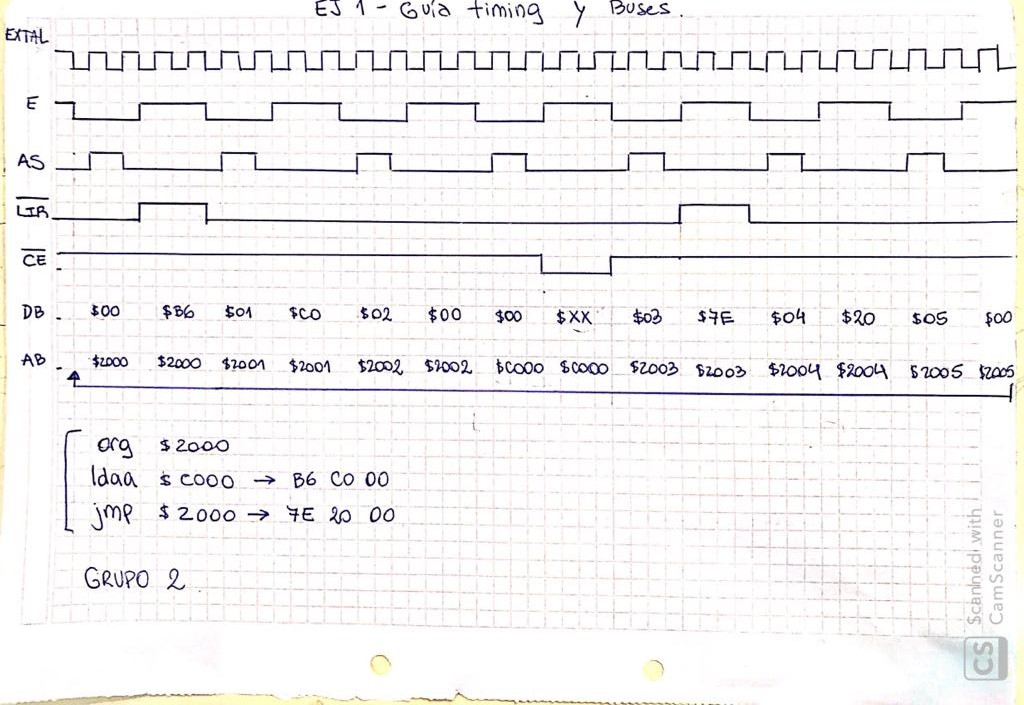 EJ 1 - Guía timing y Buses.
EXTAL
E
AS
LIR
CE
DB $00 $B6 $01 $C0 $02 $00 $00 $XX $03 $7E $04 $20 $05 $00
AB $2000 $2000 $2001 $2001 $2002 $2002 $C000 $C000 $2003 $2003 $2004 $2004 $2005 $2005
org $2000
ldaa $C000 → B6 C0 00
jmp $2000 → 7E 20 00
GRUPO 2
Scanned with
CamScanner
CS